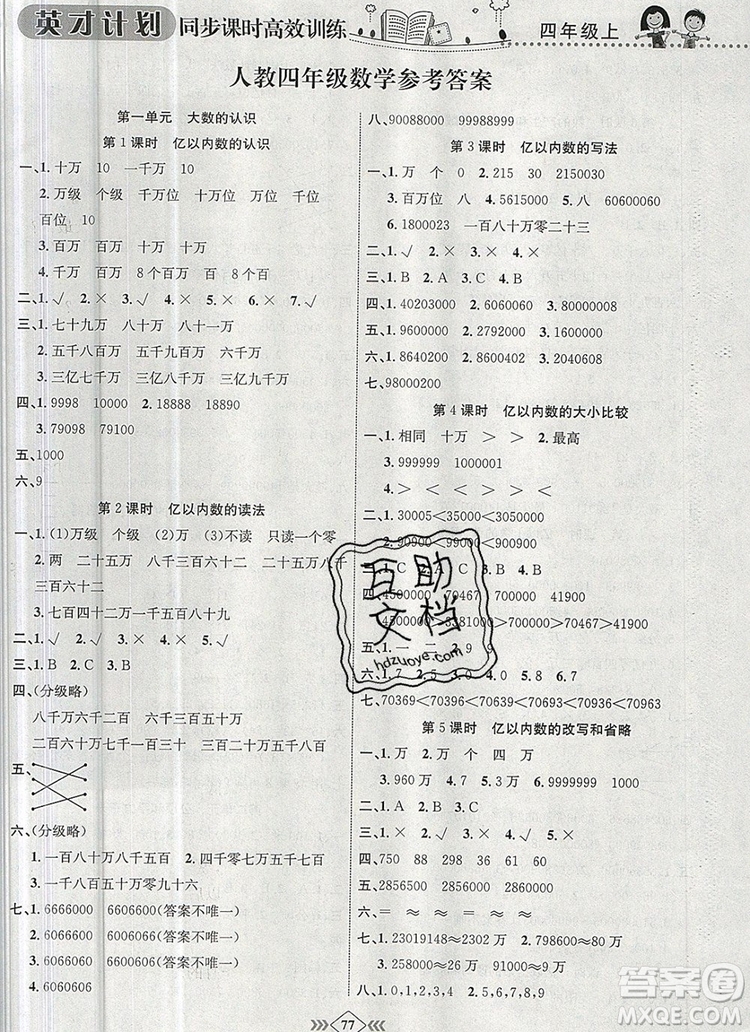 英才计划 同步课时高效训练 四年级上
人教四年级数学参考答案
第一单元 大数的认识
第1课时 亿以内数的认识
一、1.十万 10 一千万 10
2.万级 个级 十万位 万位 千位
百位 10
3.百万 百万 十万 十万
4.千万 百万 8个百万 百 8个百
二、1.√ 2.× 3.√ 4.× 5.× 6.× 7.√
三、1.七十九万 八十万 八十一万
2.四百五十万 五百五十万 六百五十万
3.三亿七千万 三亿八千万 三亿九千万
四、1.9998 10000 2.18888 18890
3.79098 79100 4.90000 100000
五、1000
六、9
第2课时 亿以内数的读法
一、1.(1)万级 个级 (2)万 (3)不读 只读一个零
2.两 二十五万 八千三百六十二 二十五万八千
三百六十二
3.五百万七千 八百六十万零八百九十
二、1.√ 2.√ 3.× 4.√
三、1.C 2.B 3.C
四、(分级略)
八千万六千二百 六千三百五十万
二百六十万六千六百 八千零七万
五、
六、(分级略)
1.一百八十万八千五百 2.四千零七万五千二百
3.一千六百一十五万零九十六
七、1.6666000 6606600(答案不唯一)
2.6660000 6666000(答案不唯一)
3.6066060 6600606(答案不唯一)
4.6060606
八、90088000 99988999
第3课时 亿以内数的写法
一、1.万 个 0 2.215 30 2150030
3.百万位 八 4.5615000 5.八 60600000
6.1800023 一百八十万零二十三
二、1.√ 2.× 3.× 4.×
三、1.B 2.A 3.C 4.B
四、1.40203000 2.6060060 3.80000008
五、1.9600000 2.2792000 3.16000000
六、1.8640002 2.8600402 3.2008064
七、98000200
第4课时 亿以内数的大小比较
一、1.相同 十万 > > 2.最高
3.999999 1000001
4.> < < < > >
二、1.30005<30050<30500<35000
2.90900<90990<99000<99099
三、1.C
四、4500000
五、1.
六、1.7 2.5
七、70369<70396<70629<70961
第5课时 亿以内数的改写和省略
一、1.万 2.万 个 四 万
3.960万 4.570万 5.4 9
二、1.A 2.B 3.C
三、1.× 2.√ 3.× 4.√
四、750 88 298 36 61 60
五、2856500 2857000 2860000
六、= ≈ = ≈ ≈ ≈
七、1.23019148≈2302万 2.798600≈80万
3.258000≈26万 4.7,5,6,7,8,9
77
百助文档
hdzuoye.com
答案圈
MXQE.COM